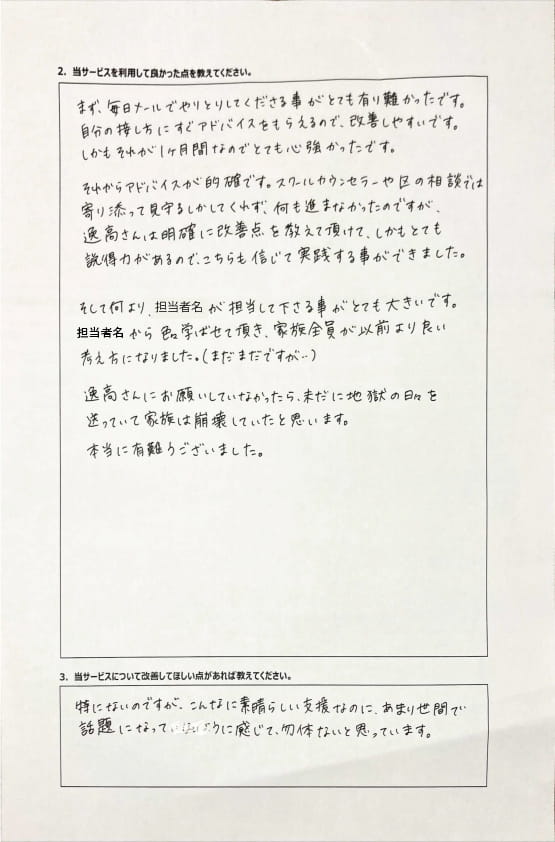 2. 当サービスを利用して良かった点を教えてください。
まず、毎日メールでやりとりしてくださる事がとても有り難かったです。
自分の接し方にすぐアドバイスをもらえるので、改善しやすいです。
しかもそれが1ヶ月間なのでとても心強かったです。
それからアドバイスが的確です。スクールカウンセラーや区の相談では
寄り添って見守るしかしてくれず、何も進まなかったのですが、
逸高さんは明確に改善点を教えて頂けて、しかもとても
説得力があるので、こちらも信じて実践する事ができました。
そして何より、担当者名が担当して下さる事がとても大きいです。
担当者名から色々学ばせて頂き、家族全員が以前より良い
考え方になりました。(まだまだですが‥)
逸高さんにお願いしていなかったら、未だに地獄の日々を
送っていて家族は崩壊していたと思います。
本当に有難うございました。
3. 当サービスについて改善してほしい点があれば教えてください。
特にないのですが、こんなに素晴らしい支援なのに、あまり世間で
話題になって に感じて、勿体ないと思っています。